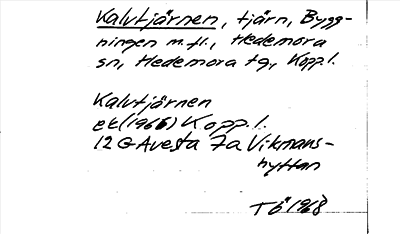 Kalvtjärnen, tjärn, Bygg-
ningen m.fl., Hedemora
sn, Hedemora tg, Koppl.
Kalvtjärnen
ek (1966) Koppl.
12 G Avesta 7a Vikmans-
hyttan
TÖ 1968